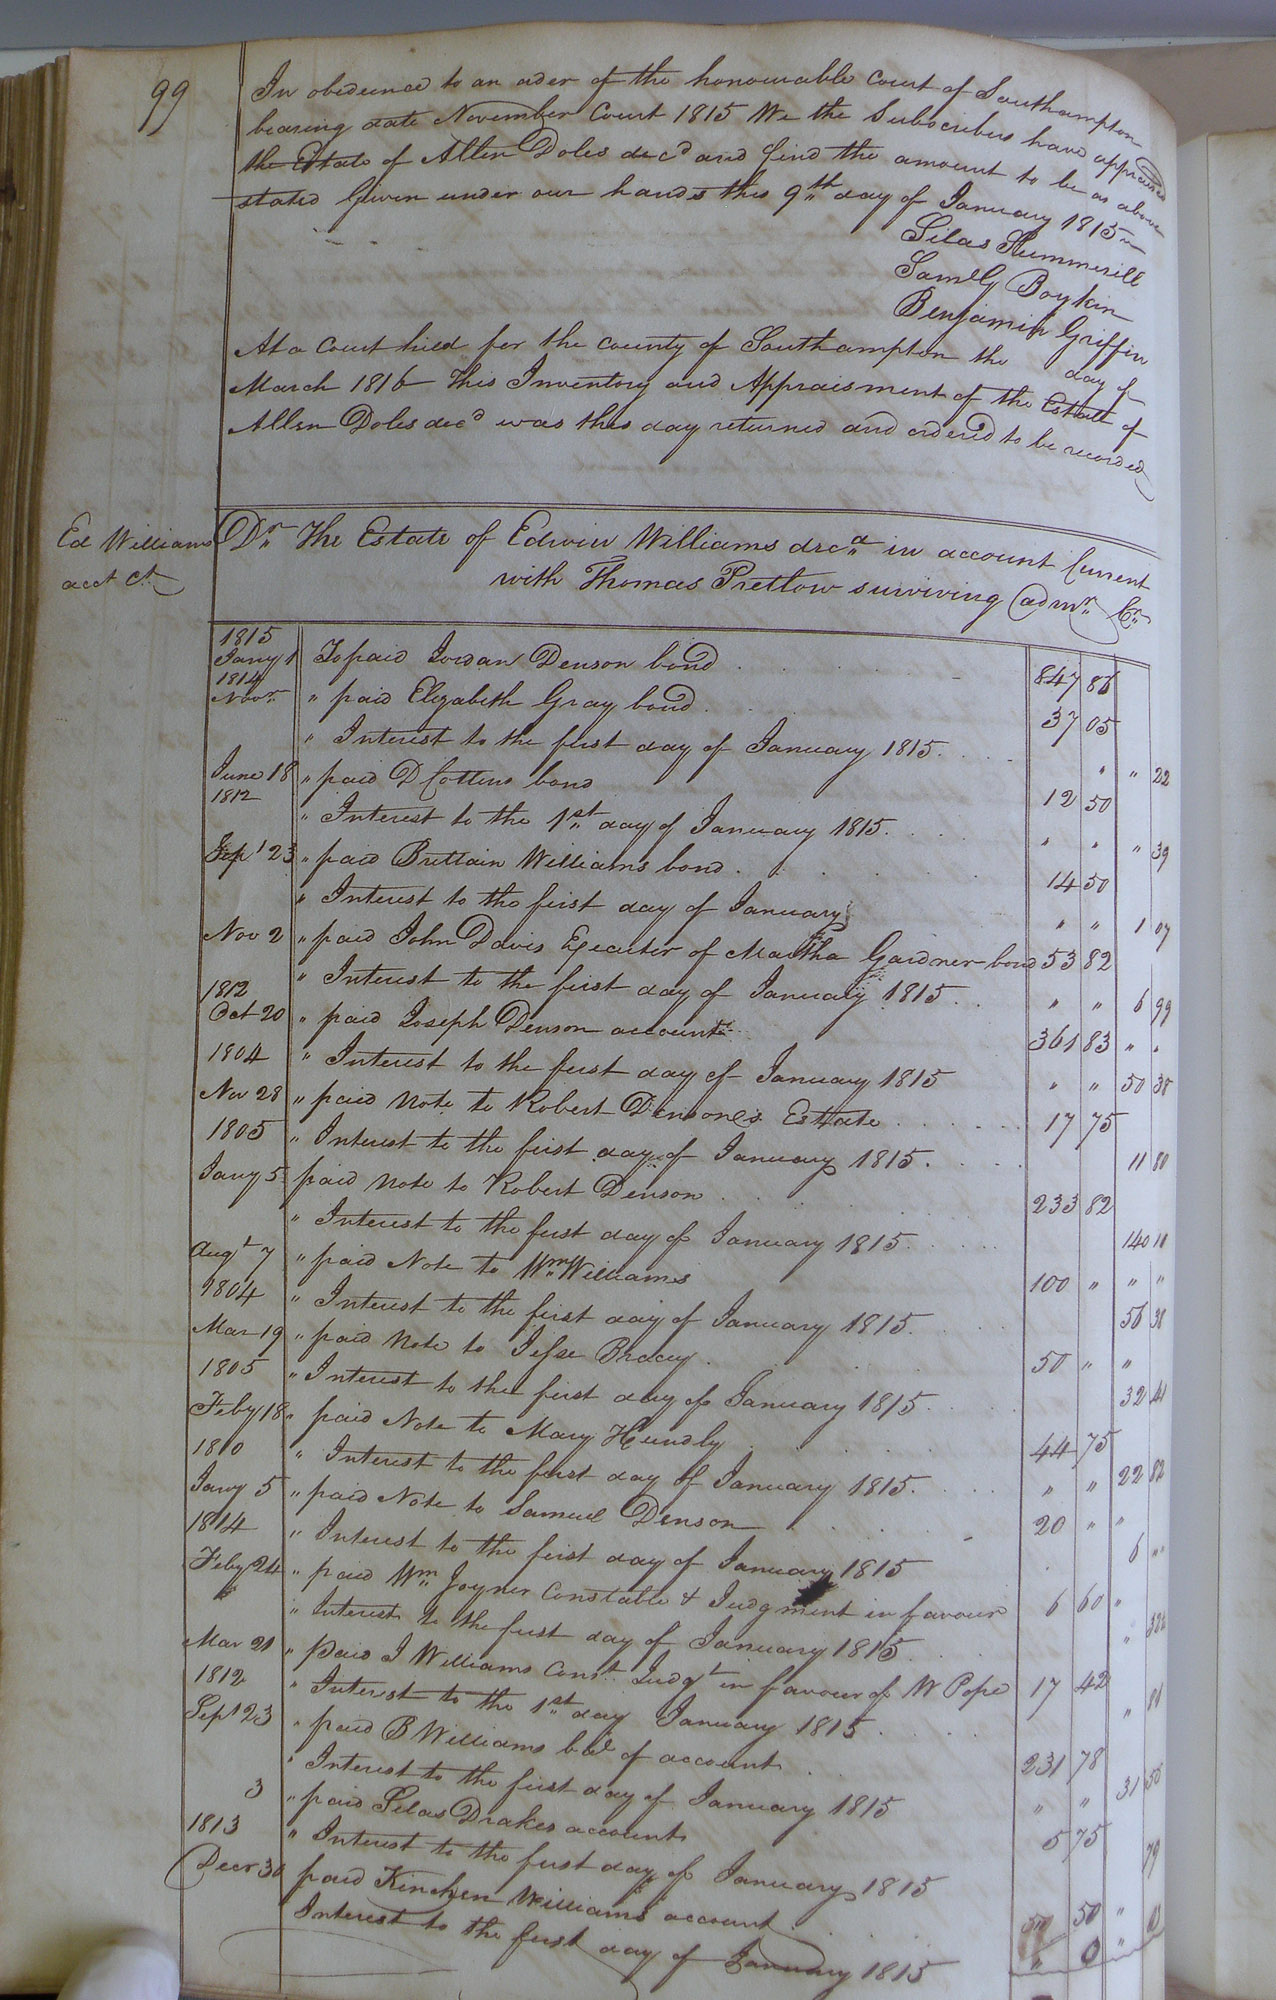 99
In obedience to an oder of the honourable Court of Southampton
bearing date November Court 1815 We the Subscribers have appraised
the Estate of Allen Doles decd and find the amount to be as above
stated Given under our hands this 9th day of January 1815
Silas Summerill
Saml G Boykin
Benjamin Griffin
At a Court held for the County of Southampton the day of
March 1816 This Inventory and Appraisment of the Estate of
Allen Doles decd was this day returned and ordered to be recorded
Ed Williams
acct Ct
Dr The Estate of Edwin Williams decd in account Current
with Thomas Pretlow surviving admr Cr
1815
Jany 1 To paid Jordan Denson bond 847 86
1814
Novr " paid Elizabeth Gray bond 37 05
" Interest to the first day of January 1815 " " 22
June 18 " paid D Cottens bond 12 50
1812
" Interest to the 1st day of January 1815 " " " 39
Sept 23 " paid Brittain Williams bond 14 50
" Interest to the first day of January " " 1 07
Nov 2 " paid John Davis Executer of Martha Gardner bond 53 82
" Interest to the first day of January 1815 " " 6 99
1812
Oct 20 " paid Joseph Denson account 361 83 " "
1804 " Interest to the first day of January 1815 " " 50 38
Nov 28 " paid Note to Robert Denson's Estate 17 75
1805 " Interest to the first day of January 1815 11 80
Jany 5 paid Note to Robert Denson 233 82
" Interest to the first day of January 1815 140 10
Augt 7 " paid Note to Wm Williams 100 " " "
1804 " Interest to the first day of January 1815 56 38
Mar 19 " paid Note to Jesse Bracey 50 " "
1805 " Interest to the first day of January 1815 32 41
Feby 18 " paid Note to Mary Hundly 44 75
1810 " Interest to the first day of January 1815 " " 22 82
Jany 5 " paid Note to Samuel Denson 20 " "
1814 " Interest to the first day of January 1815 6 "
Feby 24 " paid Wm Joyner Constable & Judgment in favour 6 60 "
" Interest to the first day of January 1815 "
Mar 21 " paid J Williams Const Judgt in favour of W Pope 17 42
1812 " Interest to the 1st day January 1815 " 81
Sept 23 " paid B Williams bal of account 231 78
" Interest to the first day of January 1815 " " 31
3 " paid Silas Drakes account 5 75
1813 " Interest to the first day of January 1815 79
Decr 30 paid Kinchen Williams account 50 "
Interest to the first day of January 1815 "